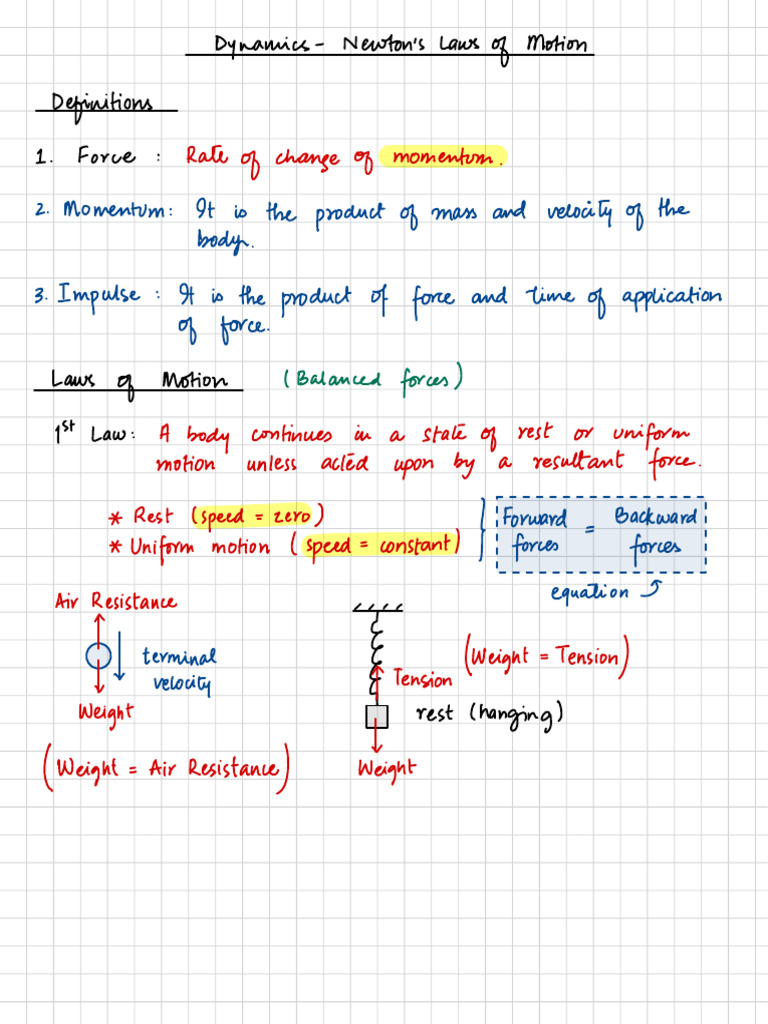 Dynamics - Newton's Laws of Motion
Definitions
1. Force : Rate of change of momentum.
2. Momentum: It is the product of mass and velocity of the
body.
3. Impulse : It is the product of force and time of application
of force.
Laws of Motion (Balanced forces)
1st Law: A body continues in a state of rest or uniform
motion unless acted upon by a resultant force.
* Rest (speed = zero)
* Uniform motion (speed = constant)
Forward forces = Backward forces
equation
Air Resistance
terminal
velocity
Weight
(Weight = Air Resistance)
(Weight = Tension)
Tension
rest (hanging)
Weight